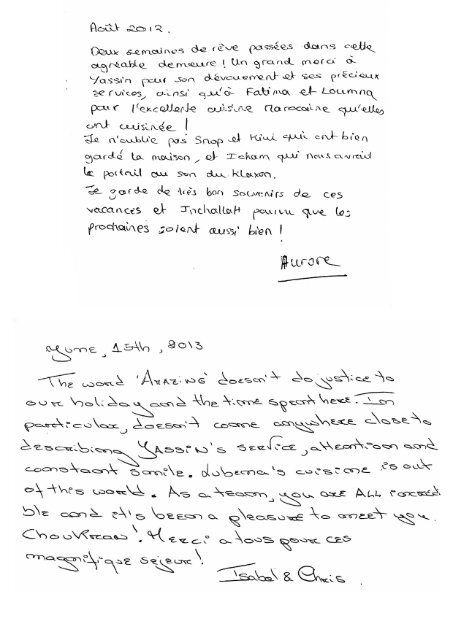 Août 2012.
Deux semaines de rêve passées dans cette
agréable demeure ! Un grand merci à
Yassin pour son dévouement et ses précieux
services, ainsi qu'à Fatima et Loumna
pour l'excellente cuisine Marocaine qu'elles
ont cuisinée !
Je n'oublie pas Snop et Kiui qui ont bien
gardé la maison, et Icham qui nous ouvrait
le portail au son du Klaxon.
Je garde de très bon souvenirs de ces
vacances et Inchallah pourvu que les
prochaines soient aussi bien !
Aurore
June, 15th, 2013
The word 'AMAZING' doesn't do justice to
our holiday and the time spent here. In
particular, doesn't come anywhere close to
describing YASSIN's service, attention and
constant smile. Lubena's cuisine is out
of this world. As a team, you are ALL incredi
ble and it's been a pleasure to meet you.
Choukran! Merci a tous pour ces
magnifique sejour!
Isabel & Chris.